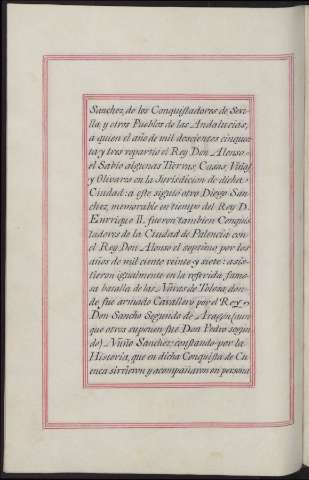 Sanchez, de los Conquistadores de Sevi-
lla, y otros Pueblos de las Andalucias;
a quien el año de mil descientos cinquen-
ta y tres repartio el Rey Don Alonso
el Sabio algunas Tierras, Casas, Viñas
y Olivares en la Jurisdicion de dicha
Ciudad: a este siguio otro Diego San-
chez, memorable en tiempo del Rey D.
Enrrique II. fueron tambien Conquis-
tadores de la Ciudad de Palencia con
el Rey Don Alonso el septimo por los
años de mil ciento veinte y siete: asis-
tieron igualmente en la referida famo-
sa batalla de las Navas de Tolosa, don-
de fue armado Cavallero por el Rey
Don Sancho Segundo de Aragon (aun
que otros suponen fue Don Pedro segun-
do) Nuño Sanchez: constando por la
Historia, que en dicha Conquista de Cu-
enca sirvieron y acompañaron en persona